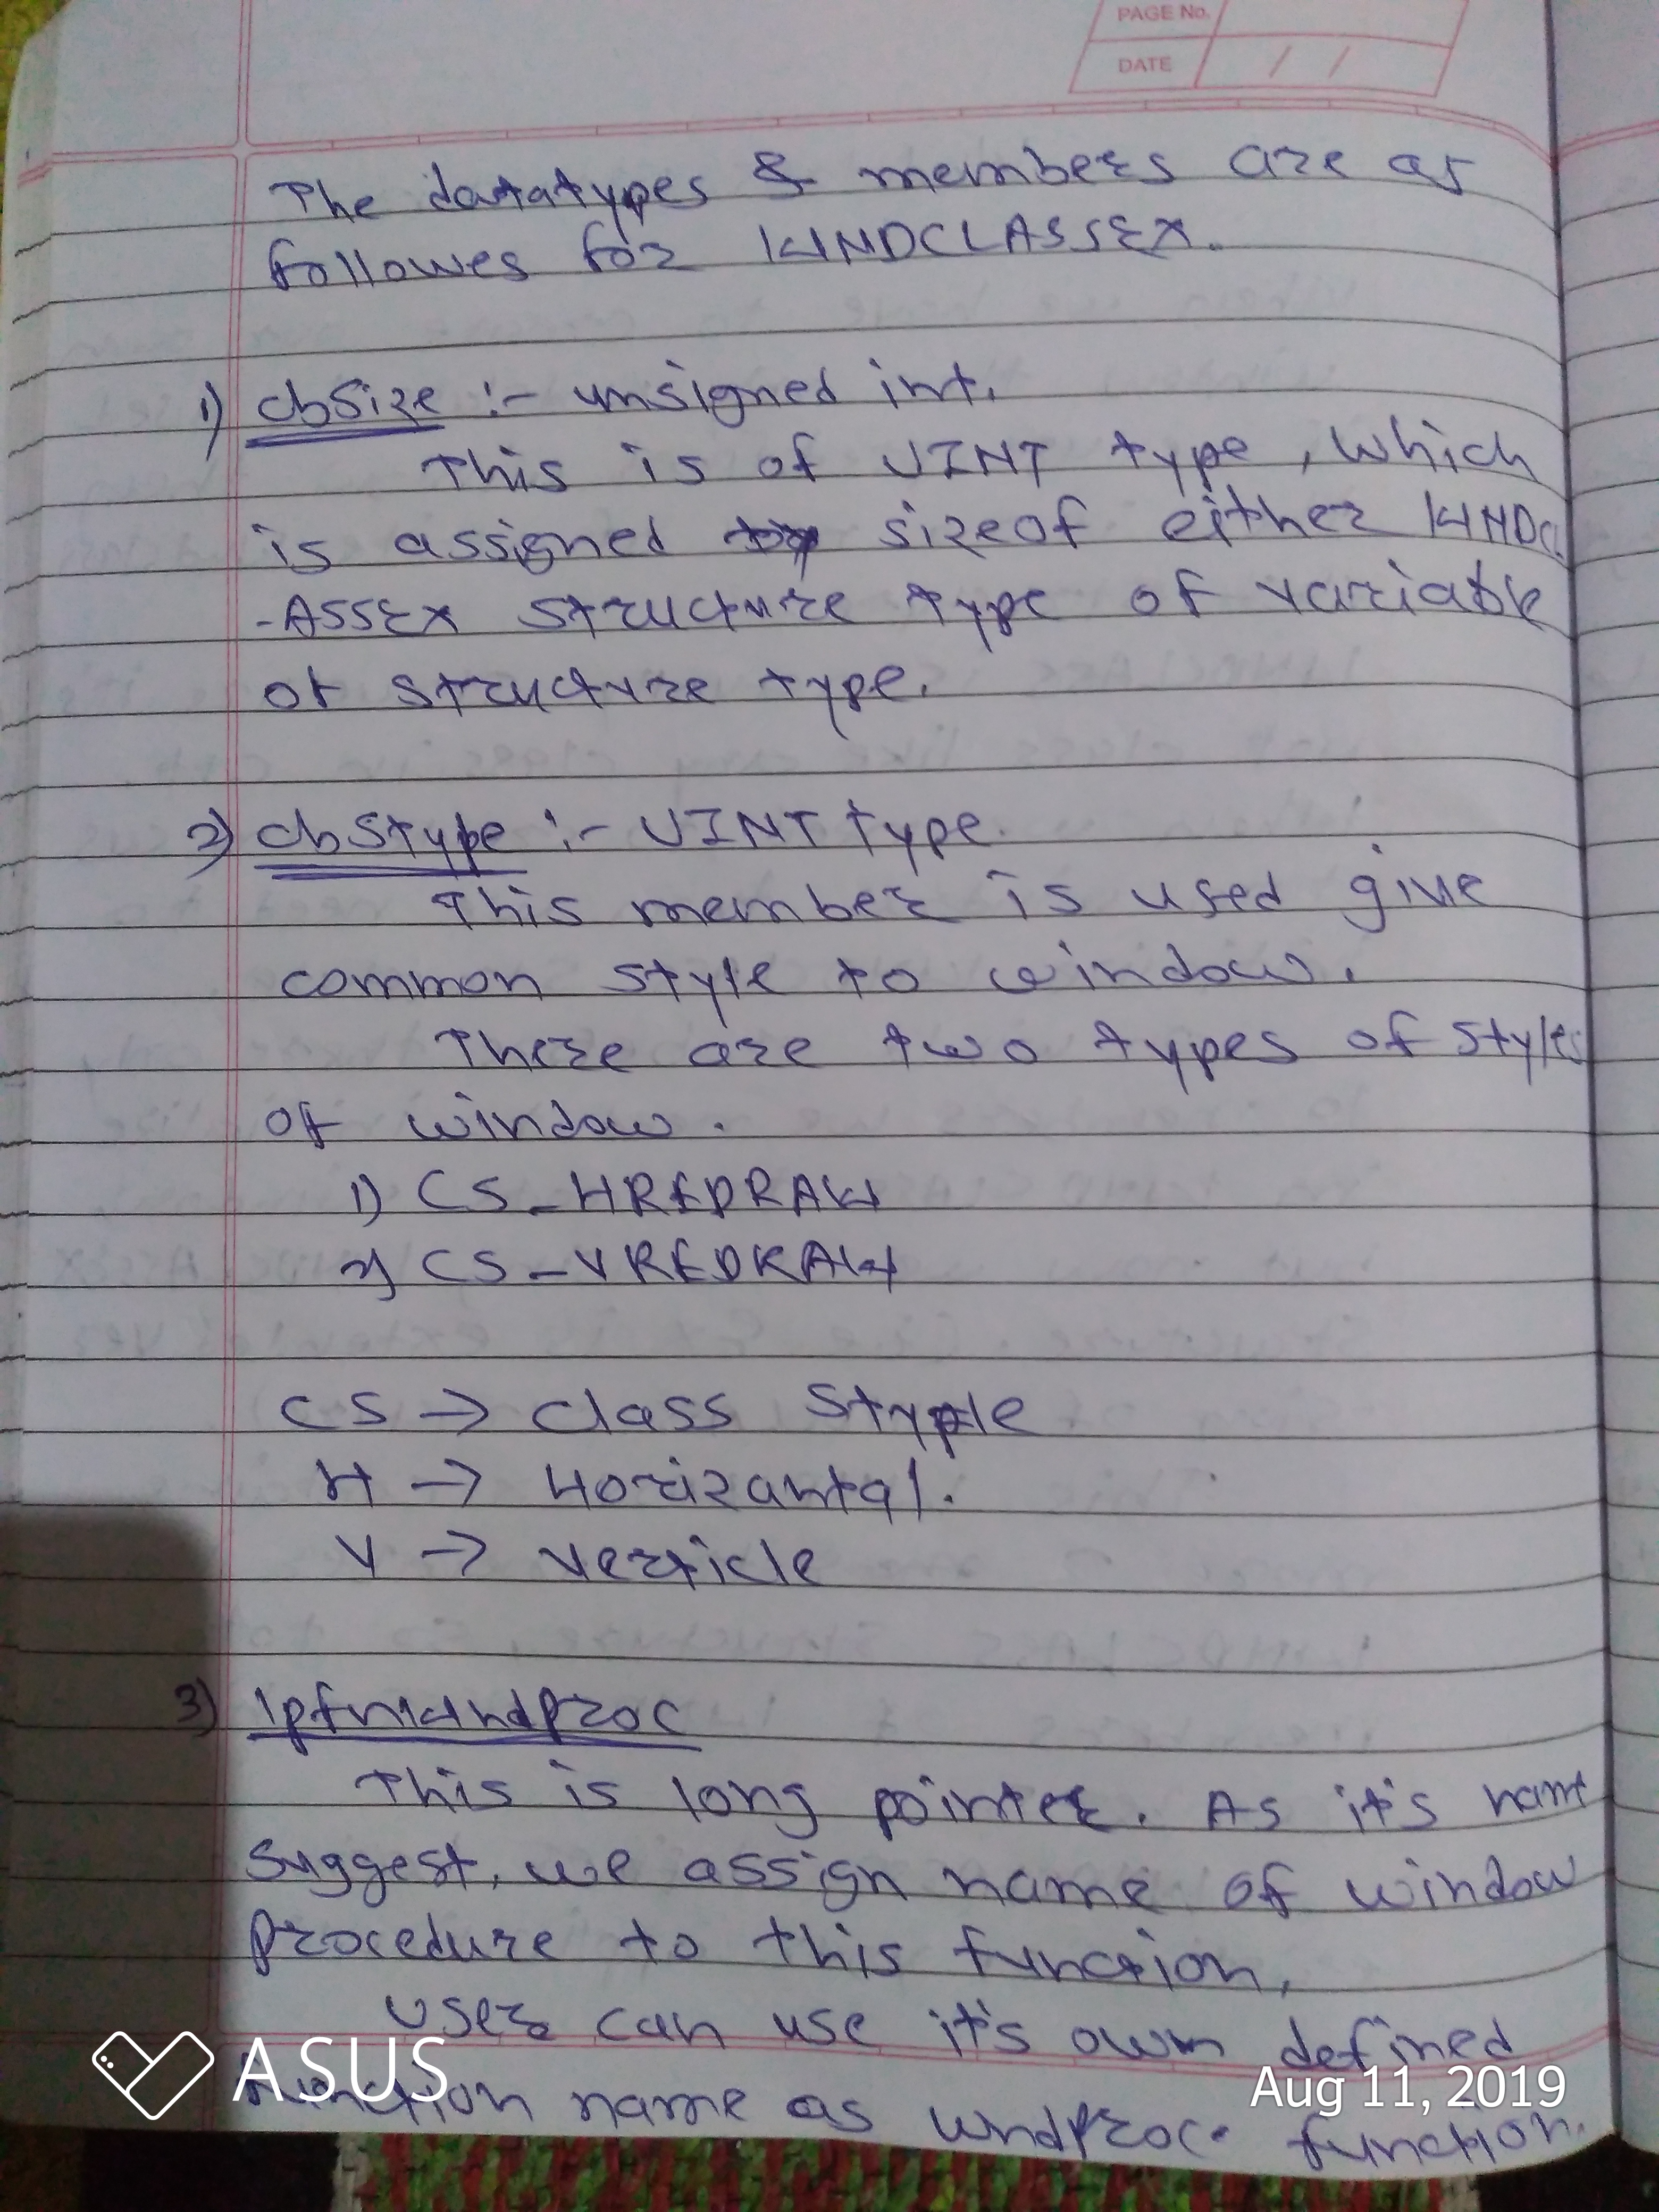 PAGE No.
DATE / /
The datatypes & members are as
followes for WNDCLASSEX.
1) cbSize :- unsigned int.
This is of UINT type, which
is assigned sizeof either WNDCL
-ASSEX structure type of variable
of structure type.
2) cbStype :- UINT type.
This member is used give
common style to window.
There are two types of styles
of window.
1) CS_HREDRAW
2) CS_VREDRAW
CS → Class Style
H → Horizantal.
V → Verticle
3) lpfnWndProc
This is long pointer. As it's name
suggest, we assign name of window
Procedure to this function.
User can use it's own defined
function name as WndProc function.
ASUS
Aug 11, 2019